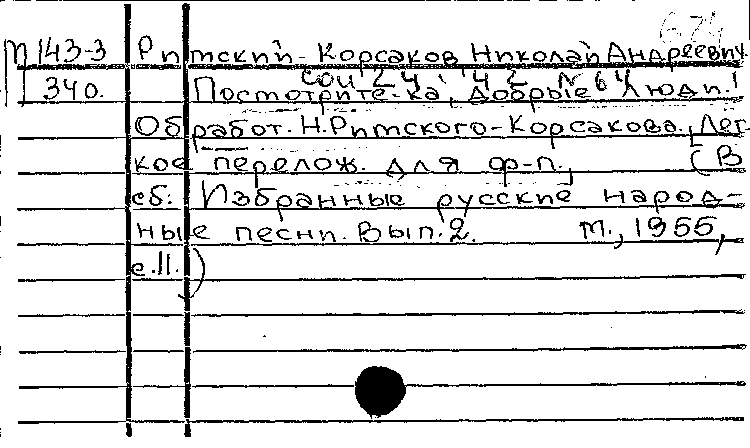 674
М 143-3 Римский-Корсаков Николай Андреевич
соч 24. 42 № 64
340. Посмотрите-ка, добрые люди!
Обработ. Н.Римского-Корсакова., Лег
кое перелож. для ф-п., (В
сб: Избранные русские народ-
ные песни. Вып.2. М., 1955,
с.11.)